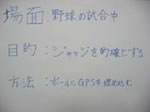 場面:野球の試合中
目的:ジャッジを的確にする
方法:ボールにGPSを埋め込む